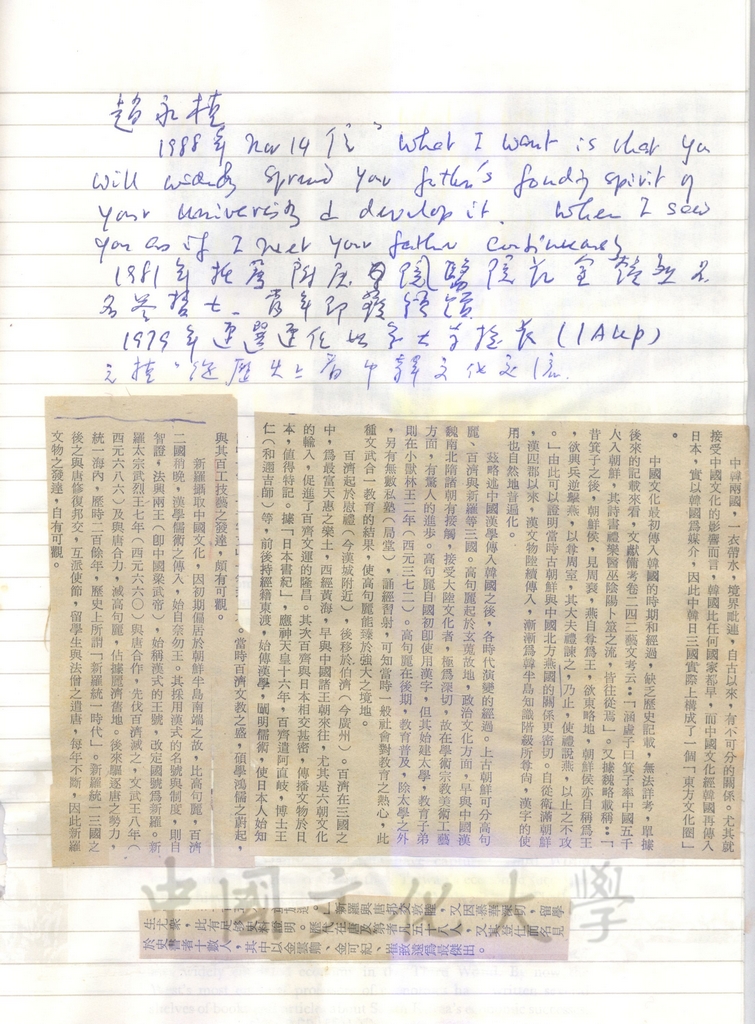 趙永植
1988年 Nov 14 信" What I want is that you
will widely spread your father's founding spirit of
your university & develop it. When I saw
you as if I meet your father continuously
1981年推薦附屬 醫院院長金
名譽博士
1979年連選連任世界大學校長 (IAUP)
"從歷史上看中韓文化交流
中韓兩國,一衣帶水,境界毗連,自古以來,有不可分的關係。尤其就
接受中國文化的影響而言,韓國比任何國家都早,而中國文化經韓國再傳入
日本,實以韓國爲媒介,因此中韓日三國實際上構成了一個「東方文化圈」
。
中國文化最初傳入韓國的時期和經過,缺乏歷史記載,無法詳考,單據
後來的記載來看,文獻備考卷二四二藝文考云:「涵虛子曰箕子率中國五千
人入朝鮮,其詩書禮樂醫巫陰陽卜筮之流,皆往從焉」。又據魏略載稱:「
昔箕子之後,朝鮮侯,見周衰,燕自尊爲王,欲東略地,朝鮮侯亦自稱爲王
,欲興兵逆擊燕,以尊周室,其大夫禮諫之,乃止,使禮說燕,以止之不攻
。」由此可以證明當時古朝鮮與中國北方燕國的關係更密切。自從衛滿朝鮮
,漢四郡以來,漢文物陸續傳入,漸漸爲韓半島知識階級所尊尚,漢字的使
用也自然地普遍化。
茲略述中國漢學傳入韓國之後,各時代演變的經過。上古朝鮮可分高句
麗、百濟與新羅等三國。高句麗起於玄菟故地,政治文化方面,早與中國漢
魏南北隋諸朝有接觸,接受大陸文化者,極爲深切,故在學術宗教美術工藝
方面,有驚人的進步。高句麗自國初即使用漢字,但其始建太學,教育子弟
則在小獸林王二年(西元三七二)。高句麗在後期,教育普及,除太學之外
,另有無數私塾(局堂),誦經習射,可知當時一般社會對教育之熱心,此
種文武合一教育的結果,使高句麗能臻於強大之境地。
百濟起於慰禮(今漢城附近),後移於伯濟(今廣州)。百濟在三國之
中,爲最富天惠之樂土,西經黃海,早與中國諸王朝來往,尤其是六朝文化
的輸入,促進了百濟文運的隆昌。其次百濟與日本相交甚密,傳播文物於日
本,值得特記。據「日本書紀」,應神天皇十六年,百濟遣阿直岐,博士王
仁(和邇吉師)等,前後持經籍東渡,始傳漢學,闡明儒術,使日本人始知
。當時百濟文教之盛,碩學鴻儒之蔚起,
與其百工技藝之發達,頗有可觀。
新羅攝取中國文化,因初期偏居於朝鮮半島南端之故,比高句麗,百濟
二國稍晚。漢學儒術之傳入,始自奈勿王。其採用漢式的名號與制度,則自
智證,法興兩王(即中國梁武帝),始稱漢式的王號,改定國號爲新羅。新
羅太宗武烈王七年(西元六六〇)與唐合作,先伐百濟滅之,文武王八年(
西元六八六)及與唐合力,滅高句麗,佔據麗濟舊地。後來驅逐唐之勢力,
統一海內,歷時二百餘年,歷史上所謂「新羅統一時代」。新羅統一三國之
後之與唐修復邦交,互派使節,留學生與法僧之遣唐,每年不斷,因此新羅
文物之發達,自有可觀。
新羅與唐邦交敦睦,又因慕華深切,留學
生尤衆,此有足够史料證明。歷代在唐及第者凡五十八人,又其登仕而名見
於史書者十數人,其中以金雲卿、金可紀、崔致遠爲最傑出。
中國文化大學